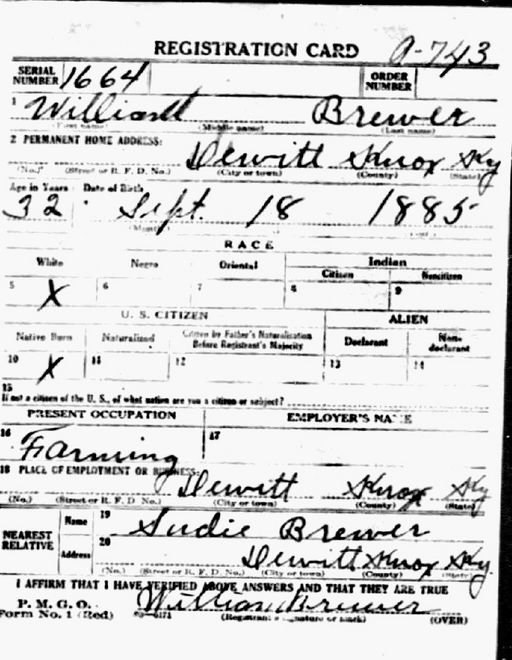 REGISTRATION CARD A-743
SERIAL NUMBER 1664 ORDER NUMBER
1 William Brewer
(First name) (Middle name) (Last name)
2 PERMANENT HOME ADDRESS:
Dewitt Knox Ky
(No.) (Street or R. F. D. No.) (City or town) (County) (State)
Age in Years Date of Birth
32 Sept. 18 1885
(Month)
RACE
White Negro Oriental Indian
Citizen Noncitizen
5 X 6 7 8 9
U. S. CITIZEN ALIEN
Native Born Naturalized Citizen by Father's Naturalization Before Registrant's Majority Declarant Non-declarant
10 X 11 12 13 14
15
If not a citizen of the U. S., of what nation are you a citizen or subject?
PRESENT OCCUPATION EMPLOYER'S NAME
16 Farming 17
18 PLACE OF EMPLOYMENT OR BUSINESS:
Dewitt Knox Ky
(No.) (Street or R. F. D. No.) (City or town) (County) (State)
NEAREST RELATIVE
Name 19 Sudie Brewer
Address 20 Dewitt Knox Ky.
(No.) (Street or R. F. D. No.) (City or town) (County) (State)
I AFFIRM THAT I HAVE VERIFIED ABOVE ANSWERS AND THAT THEY ARE TRUE
P. M. G. O. William Brewer
Form No. 1 (Red) (Registrant's signature or mark) (OVER)